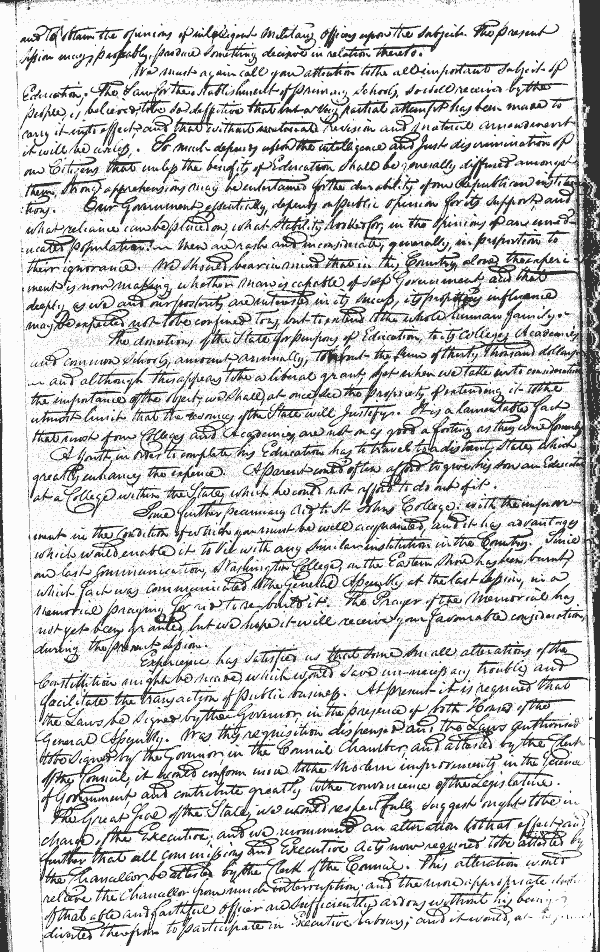 and to obtain the opinions of intelligent Military officers upon the subject. The present
session may, probably, produce something decisive in relation thereto.
We must again call your attention to the all important subject of
Education. The Law for the establishment of primary schools, so well received by the
people, is believed to be so defective that but a very partial attempt has been made to
carry it into effect and that without revision and material amendment
it will be useless. So much depends upon the intelligence and just discrimination of
our Citizens that unless the benefits of Education shall be generally diffused amongst
them, strong apprehensions may be entertained for the durability of our Republican institu-
tions. Our Government essentially, depends on public opinion for its support and
what reliance can be placed on, what stability looked for, in the opinions of an uned-
ucated population. Men are rash and inconsiderate, generally, in proportion to
their ignorance. We should bear in mind that in this Country, alone, the experi-
ment is now making, whether Man is capable of Self Government and that
deeply, as we and our posterity are interested in its success, its influence
may be expected not to be confined to us, but to extend to the whole human family.
The donations of the State for purposes of Education, to its Colleges Academies
and common schools, amount annually, to about the sum of thirty thousand dollars
and although this appears to be a liberal grant yet when we take into consideration
the importance of the object, we shall at once see the propriety of extending it to the
utmost limit that the resources of the State will justify. It is a lamentable fact
that most of our Colleges and Academies are not on as good a footing as they were formerly
A Youth in order to complete his Education has to travel to a distant State, which
greatly enhances the expence. A parent could often afford to give his son an Education
at a College within the State, which he could not afford to do out of it.
Some further pecuniary aid to St Johns College, with the improve-
ment in the condition of which you must be well acquainted, and it has advantages
which would enable it to vie with any similar institution in the Country. Since
our last communication, Washington College, on the Eastern Shore has been burnt,
which fact was communicated to the General Assembly at the last session, in a
memorial praying for aid to re-build it. The Prayer of the Memorial has
not yet been granted but we hope it will receive your favourable consideration,
during the present session.
Experience has satisfied us that some small alterations of the
Constitution might be made which would save unnecessary trouble and
facilitate the transaction of public business. At present it is required that
the Laws be signed by the Governor in the presence of both Houses of the
General Assembly. Was this requisition dispensed and the Laws authorised
to be signed by the Governor, in the Council Chamber, and attested by the Clerk
of the Council, it would conform more to the modern improvements in the Science
of Government and contribute greatly to the convenience of the Legislature.
The Great Seal of the State, we would respectfully suggest ought to be in
charge of the Executive, and we recommend an alteration to that effect and
further that all commissions and Executive Acts now required to be attested by
the Chancellor be attested by the Clerk of the Council. This alteration would
relieve the Chancellor from much interruption and the more appropriate duties
of that able and faithful officer are sufficiently arduous without his being
diverted therefrom to participate in Executive labours; and it would, at the